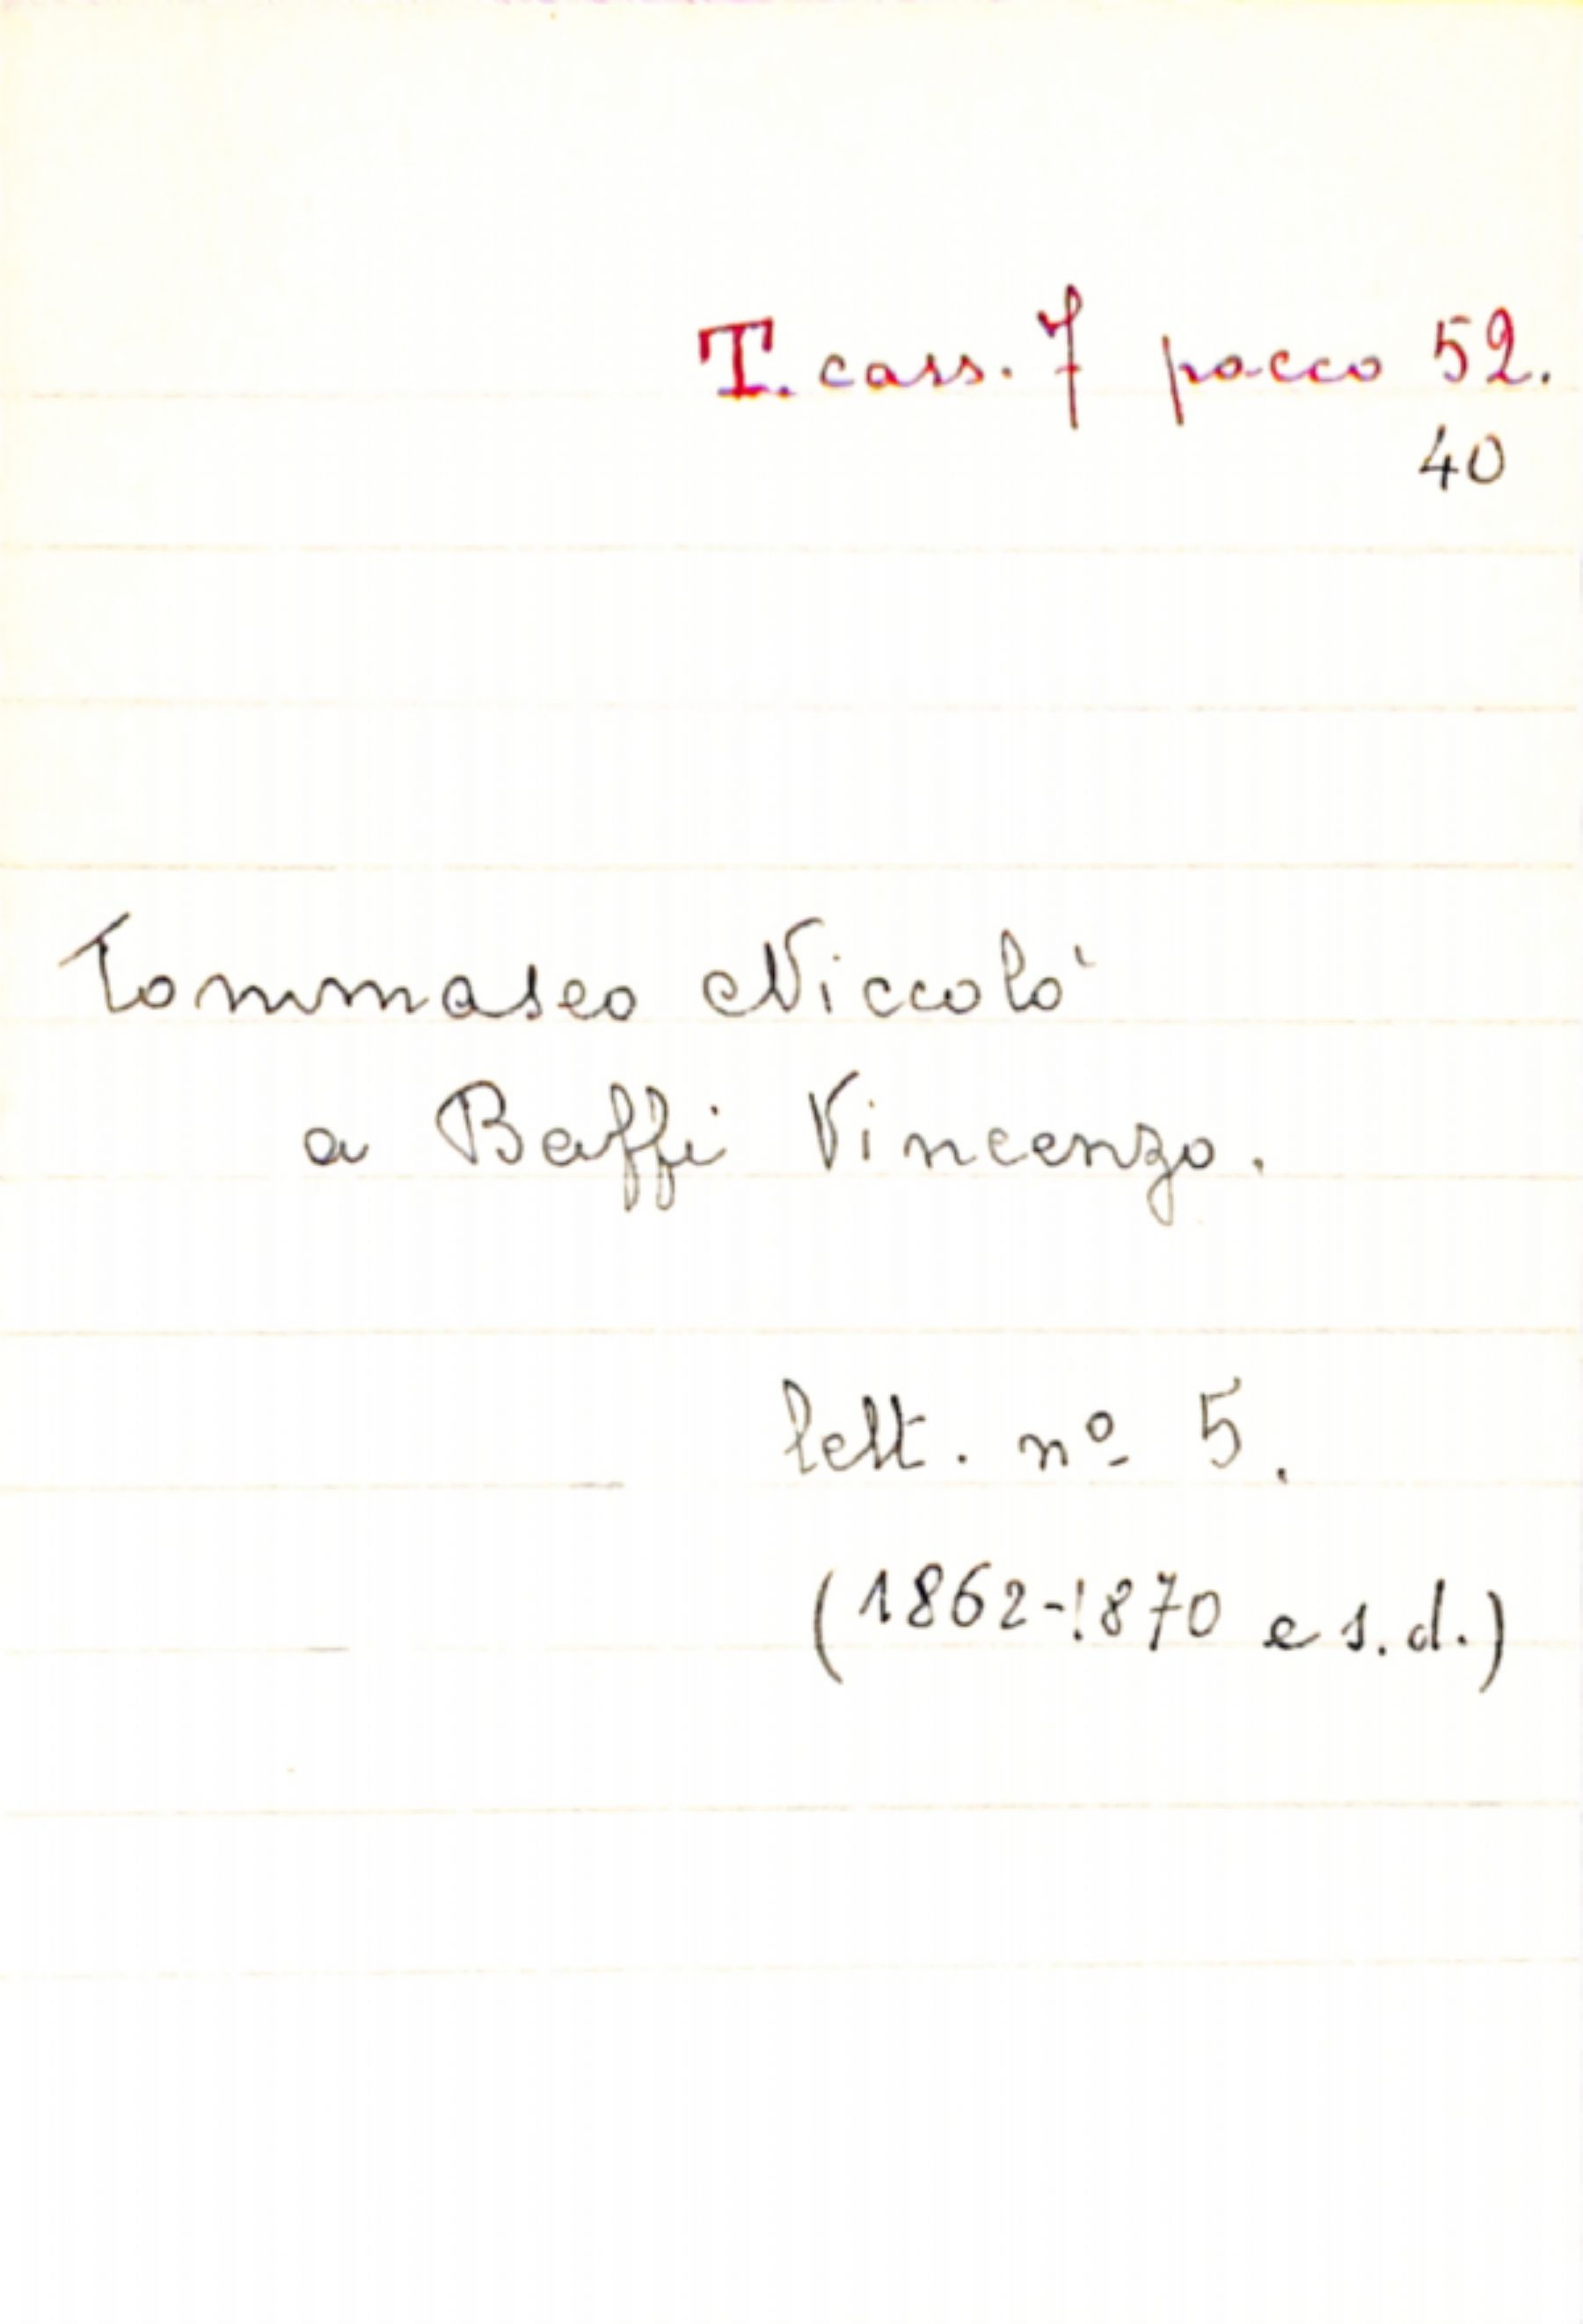 T. cass. 7 pacco 52.
40
Tommaseo Niccolò
a Baffi Vincenzo.
lett. nº 5.
(1862-1870 e s.d.)